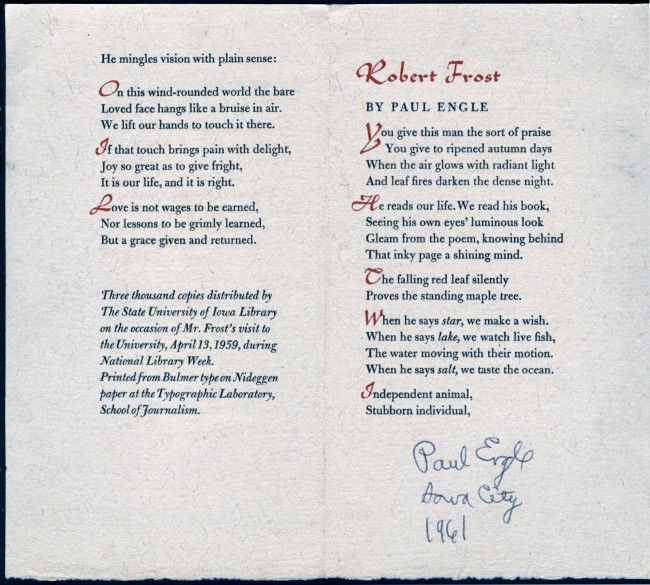 Robert Frost
BY PAUL ENGLE
You give this man the sort of praise
You give to ripened autumn days
When the air glows with radiant light
And leaf fires darken the dense night.
He reads our life. We read his book,
Seeing his own eyes' luminous look
Gleam from the poem, knowing behind
That inky page a shining mind.
The falling red leaf silently
Proves the standing maple tree.
When he says star, we make a wish.
When he says lake, we watch live fish,
The water moving with their motion.
When he says salt, we taste the ocean.
Independent animal,
Stubborn individual,
Paul Engle
Iowa City
1961
He mingles vision with plain sense:
On this wind-rounded world the bare
Loved face hangs like a bruise in air.
We lift our hands to touch it there.
If that touch brings pain with delight,
Joy so great as to give fright,
It is our life, and it is right.
Love is not wages to be earned,
Nor lessons to be grimly learned,
But a grace given and returned.
Three thousand copies distributed by
The State University of Iowa Library
on the occasion of Mr. Frost's visit to
the University, April 13, 1959, during
National Library Week.
Printed from Bulmer type on Nideggen
paper at the Typographic Laboratory,
School of Journalism.